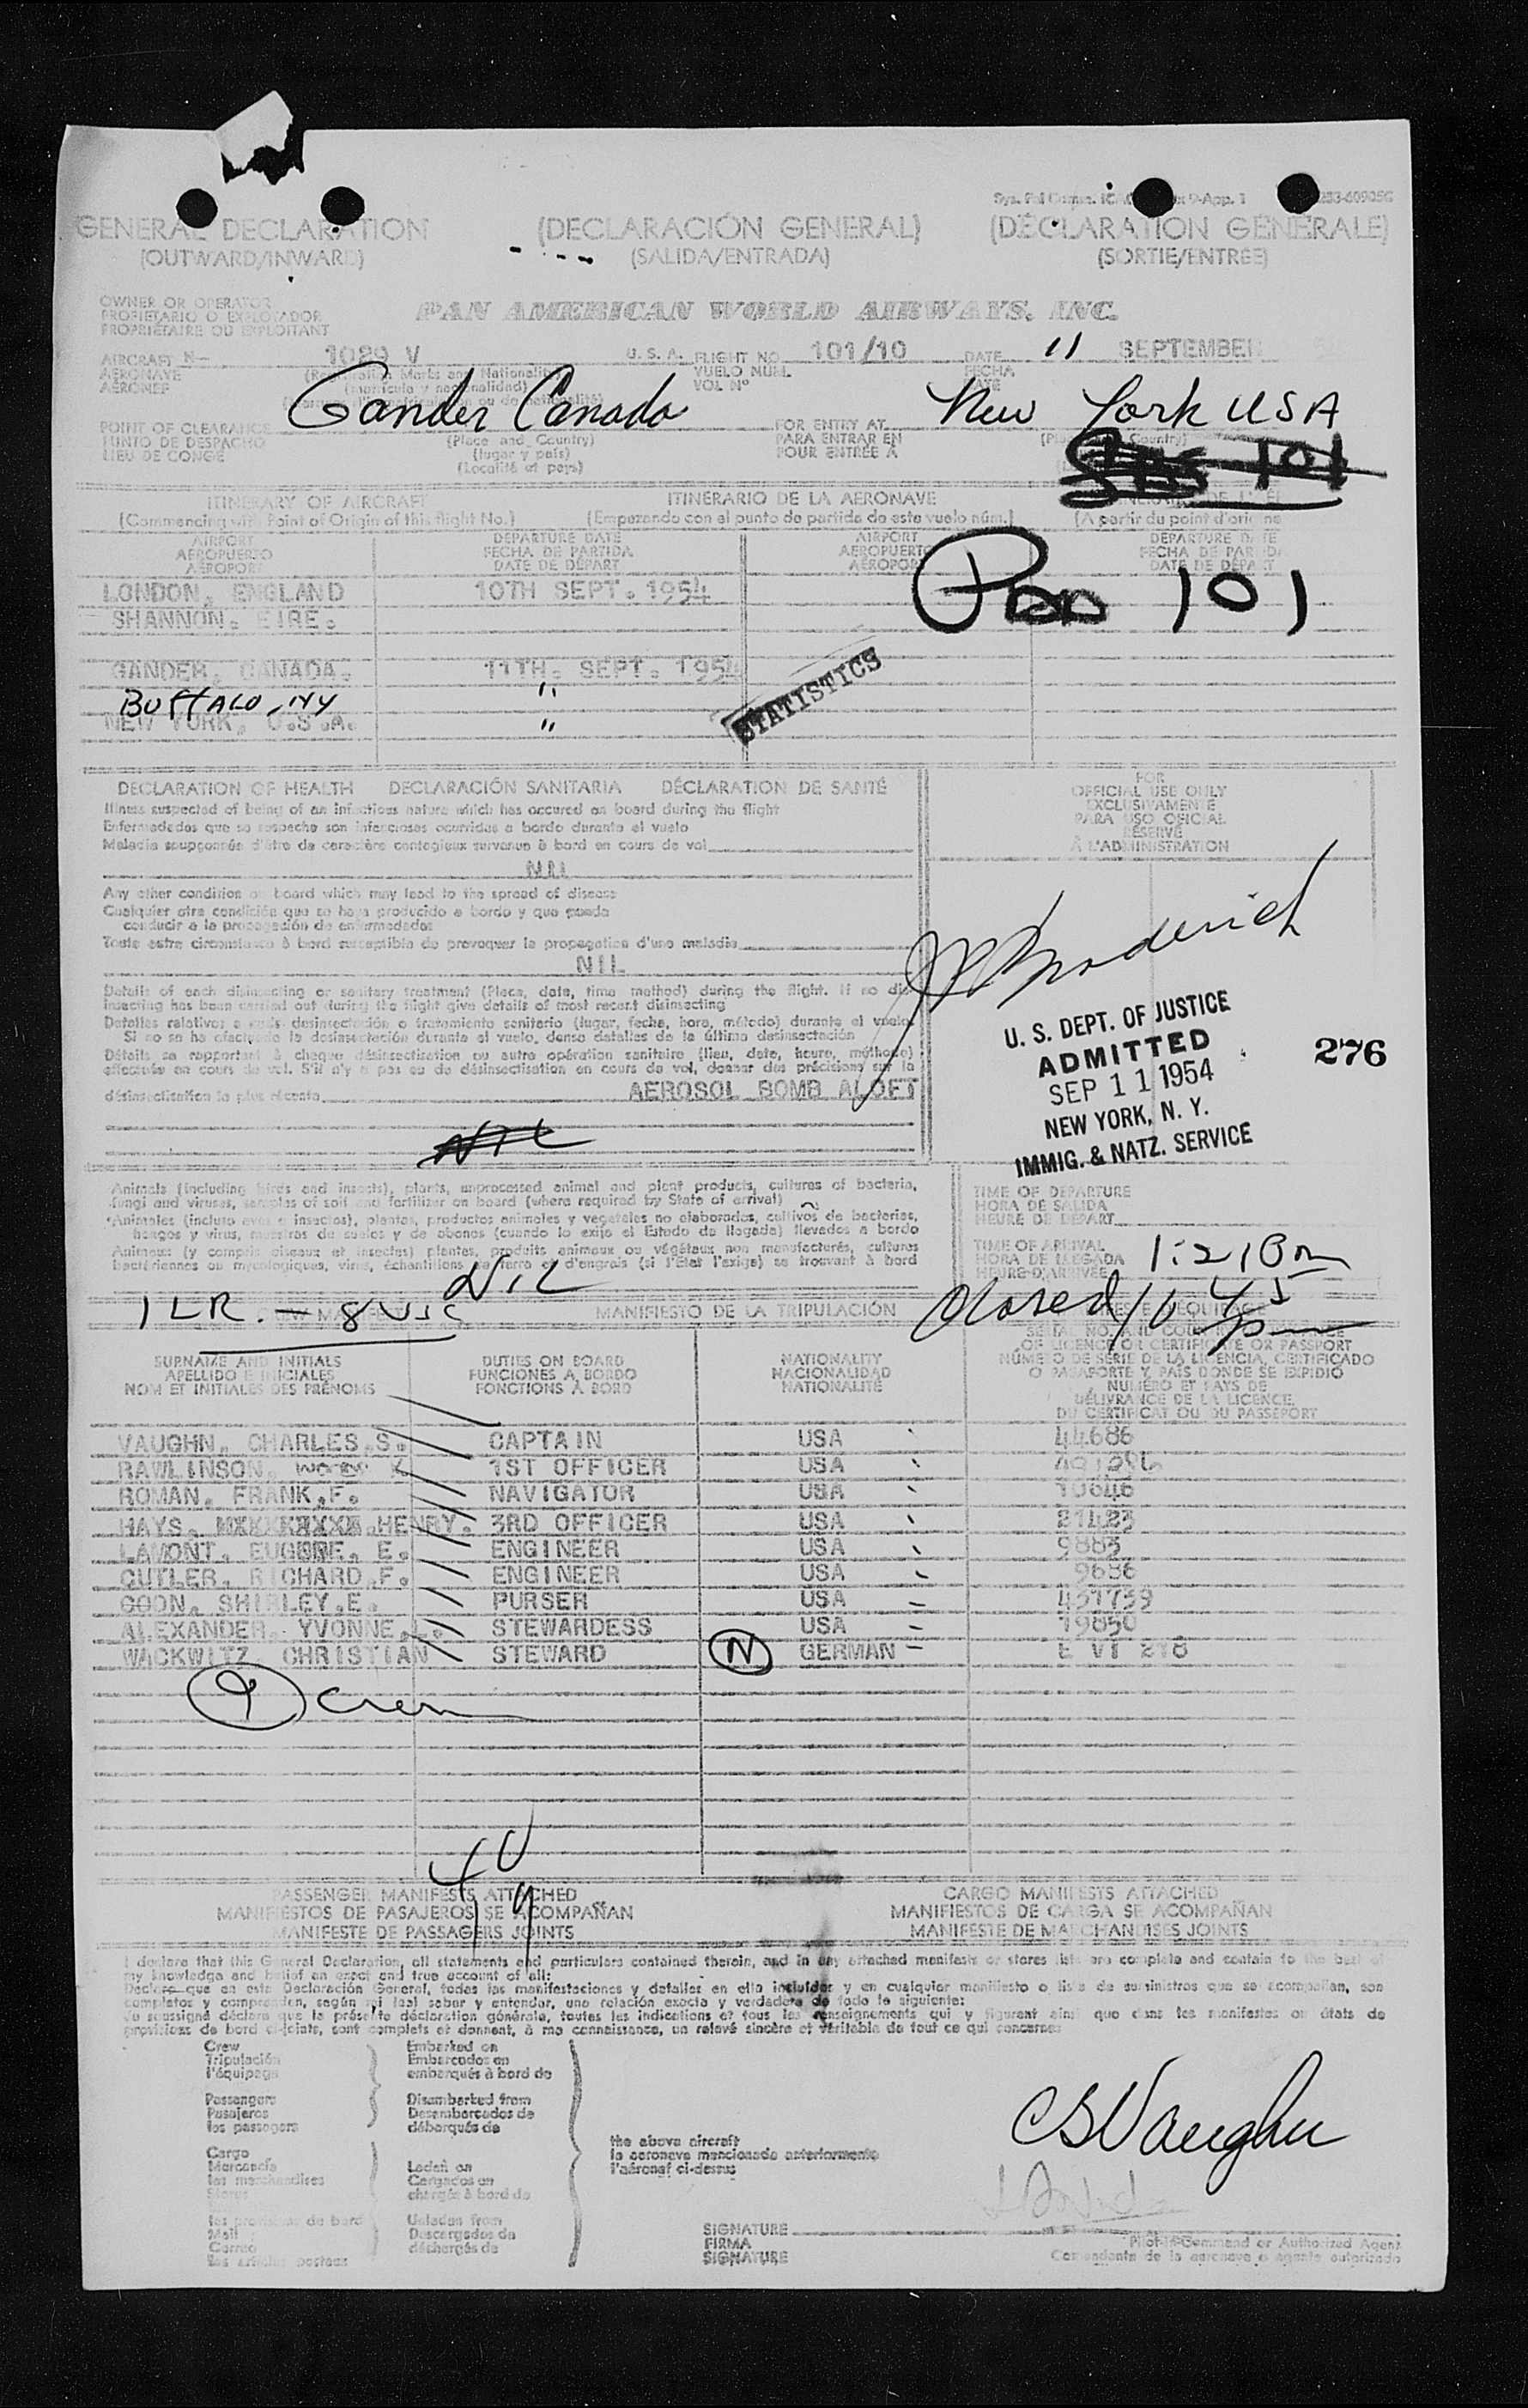 GENERAL DECLARATION (DECLARACIÓN GENERAL) (DÉCLARATION GÉNÉRALE)
(OUTWARD/INWARD) (SALIDA/ENTRADA) (SORTIE/ENTRÉE)
OWNER OR OPERATOR
PROPIETARIO O EXPLOTADOR
PROPRIÉTAIRE OU EXPLOITANT
PAN AMERICAN WORLD AIRWAYS, INC.
AIRCRAFT N— 1029 V U. S. A. FLIGHT NO 101/10 DATE 11 SEPTEMBER
AERONAVE VUELO NÚM. FECHA
AÉRONEF VOL Nº DATE
Gander Canada New York USA
POINT OF CLEARANCE FOR ENTRY AT
PUNTO DE DESPACHO (Place and Country) PARA ENTRAR EN
LIEU DE CONGÉ (lugar y país) POUR ENTRÉE A
(Localité et pays)
101
ITINERARY OF AIRCRAFT ITINERARIO DE LA AERONAVE
(Commencing with Point of Origin of this flight No.) (Empezando con el punto de partida de este vuelo núm.) (A partir du point d'origine
AIRPORT DEPARTURE DATE AIRPORT DEPARTURE DATE
AEROPUERTO FECHA DE PARTIDA AEROPUERTO FECHA DE PARTIDA
AÉROPORT DATE DE DÉPART AÉROPORT DATE DE DÉPART
Pan 101
LONDON, ENGLAND 10TH SEPT. 1954
SHANNON. EIRE.
GANDER, CANADA. 11TH. SEPT. 1954
BUFFALO, NY "
NEW YORK, U.S.A. "
STATISTICS
DECLARATION OF HEALTH DECLARACIÓN SANITARIA DÉCLARATION DE SANTÉ
Illness suspected of being of an infectious nature which has occured on board during the flight
Enfermedades que se sospecha son infecciosas ocurridas a bordo durante el vuelo
Maladie soupçonnée d'être de caractère contagieux survenue à bord en cours de vol
NIL
Any other condition on board which may lead to the spread of disease
Cualquier otra condición que se haya producido a bordo y que pueda
conducir a la propagación de enfermedades
Toute autre circonstance à bord susceptible de provoquer la propagation d'une maladie
NIL
Details of each disinsecting or sanitary treatment (Place, date, time method) during the flight. If no dis-
insecting has been carried out during the flight give details of most recent disinsecting
Detalles relativos a cada desinsectación o tratamiento sanitario (lugar, fecha, hora, método) durante el vuelo.
Si no se ha efectuado la desinsectación durante el vuelo, dense detalles de la última desinsectación
Détails se rapportant à chaque désinsectisation ou autre opération sanitaire (lieu, date, heure, méthode)
effectuée en cours de vol. S'il n'y a pas eu de désinsectisation en cours de vol, donner des précisions sur la
désinsectisation la plus récente AEROSOL BOMB
NIL
FOR
OFFICIAL USE ONLY
EXCLUSIVAMENTE
PARA USO OFICIAL
RÉSERVÉ
À L'ADMINISTRATION
Broderick
U. S. DEPT. OF JUSTICE
ADMITTED
SEP 11 1954
NEW YORK, N. Y.
IMMIG. & NATZ. SERVICE
276
Animals (including birds and insects), plants, unprocessed animal and plant products, cultures of bacteria,
fungi and viruses, samples of soil and fertilizer on board (where required by State of arrival)
Animales (incluso aves e insectos), plantas, productos animales y vegetales no elaborados, cultivos de bacterias,
hongos y virus, muestras de suelos y de abonos (cuando lo exija el Estado de llegada) llevados a bordo
Animaux (y compris oiseaux et insectes) plantes, produits animaux ou végétaux non manufacturés, cultures
bactériennes ou mycologiques, virus, échantillons de terre et d'engrais (si l'État l'exige) se trouvant à bord
NIL
TIME OF DEPARTURE
HORA DE SALIDA
HEURE DE DÉPART
TIME OF ARRIVAL
HORA DE LLEGADA
HEURE D'ARRIVÉE
1:21 pm
1 LR. — 8 USC MANIFIESTO DE LA TRIPULACIÓN Closed
SURNAME AND INITIALS DUTIES ON BOARD NATIONALITY SERIAL NO. AND COUNTRY OF ISSUANCE OF LICENCE OR CERTIFICATE OR PASSPORT
APELLIDO E INICIALES FUNCIONES A BORDO NACIONALIDAD NÚMERO DE SERIE DE LA LICENCIA, CERTIFICADO O PASAPORTE Y PAÍS DONDE SE EXPIDIÓ
NOM ET INITIALES DES PRÉNOMS FONCTIONS À BORD NATIONALITÉ NUMÉRO ET PAYS DE DÉLIVRANCE DE LA LICENCE, DU CERTIFICAT OU DU PASSEPORT
VAUGHN, CHARLES.S. CAPTAIN USA 44686
RAWLINSON, 1ST OFFICER USA
ROMAN, FRANK.F. NAVIGATOR USA 10646
HAYS, HENRY. 3RD OFFICER USA 21423
LAMONT, EUGENE. E. ENGINEER USA 9883
CUTLER, RICHARD.F. ENGINEER USA 9636
COON, SHIRLEY.E. PURSER USA 437739
ALEXANDER, YVONNE. STEWARDESS USA 19850
WACKWITZ, CHRISTIAN STEWARD N GERMAN E VI 218
9 Crew
PASSENGER MANIFESTS ATTACHED CARGO MANIFESTS ATTACHED
MANIFIESTOS DE PASAJEROS SE ACOMPAÑAN MANIFIESTOS DE CARGA SE ACOMPAÑAN
MANIFESTE DE PASSAGERS JOINTS MANIFESTE DE MARCHANDISES JOINTS
I declare that this General Declaration, all statements and particulars contained therein, and in any attached manifests or stores lists are complete and contain to the best of
my knowledge and belief an exact and true account of all:
Declaro que en esta Declaración General, todas las manifestaciones y detalles en ella incluidos y en cualquier manifiesto o lista de suministros que se acompañan, son
completos y comprenden, según mi leal saber y entender, una relación exacta y verdadera de todo lo siguiente:
Je soussigné déclare que la présente déclaration générale, toutes les indications et tous les renseignements qui y figurent ainsi que dans les manifestes ou états de
provisions de bord ci-joints, sont complets et donnent, à ma connaissance, un relevé sincère et véritable de tout ce qui concerne:
Crew Embarked on
Tripulación Embarcados en
l'équipage embarqués à bord de
Passengers Disembarked from
Pasajeros Desembarcados de
les passagers débarqués de
the above aircraft
la aeronave mencionada anteriormente
l'aéronef ci-dessus
Cargo
Mercancía Laden on
les marchandises Cargados en
Stores chargés à bord de
les provisions de bord Unladen from
Mail Descargados de
Correo déchargés de
les articles postaux
CSVaughn
SIGNATURE
FIRMA Pilot-in-Command or Authorized Agent
SIGNATURE Comandante de la aeronave o agente autorizado